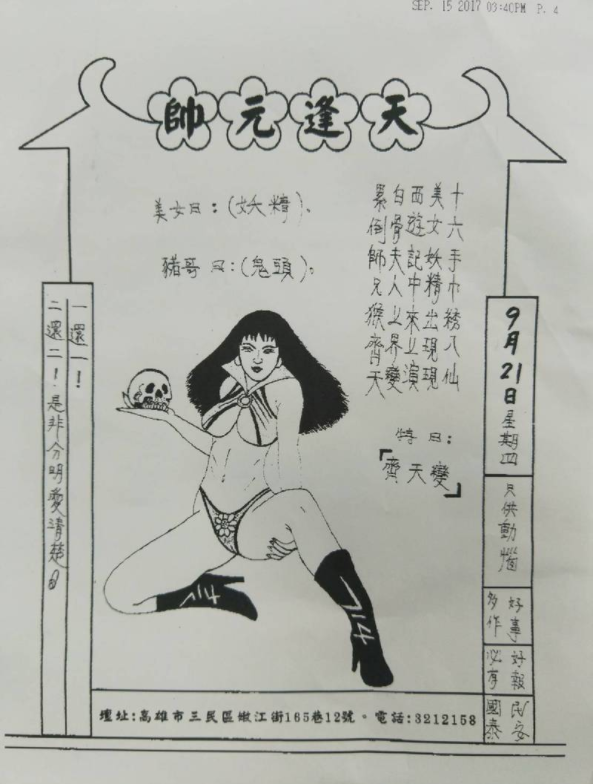 SEP. 15 2017 03:40PM P. 4
天逢元帥
十六手巾綉八仙
美女妖精出現現
西遊記中來上演
白骨夫人上界變
累倒師兄猴齊天
特曰：
「齊天變」
美女曰：（妖精）。
豬哥曰：（鬼頭）。
9月21日星期四
只供動惱
好事
多作
好報
必有
民安
國泰
一還一！
二還二！是非分明愛清楚
714
壇址:高雄市三民區嫩江街165巷12號。電話:3212158